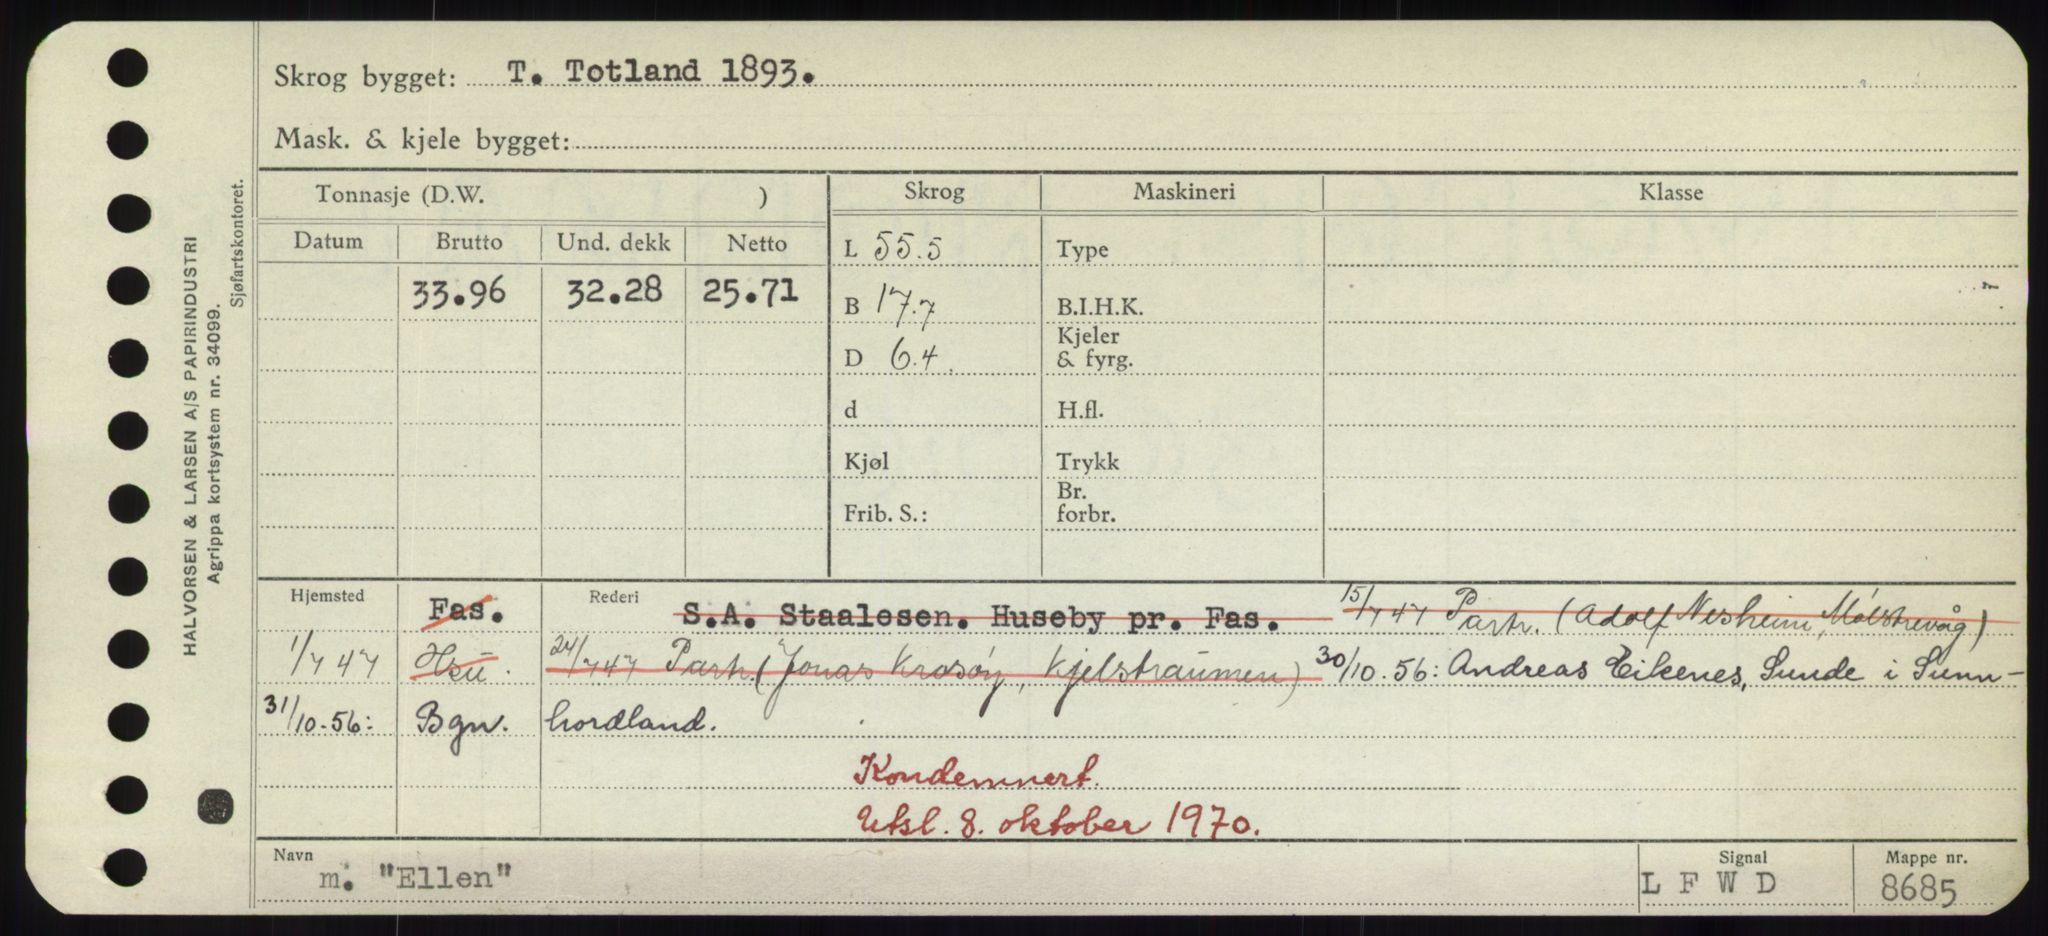 Skrog bygget: T. Totland 1893.
Mask. & kjele bygget:
Tonnasje (D.W. )
Skrog
Maskineri
Klasse
Datum Brutto Und. dekk Netto
33.96 32.28 25.71
L 55.5
B 17.7
D 6.4
d
Kjøl
Frib. S.:
Type
B.I.H.K.
Kjeler
& fyrg.
H.fl.
Trykk
Br.
forbr.
Hjemsted Fas. Rederi S.A. Staalesen. Huseby pr. Fas. 15/7 47 Partr. (Adolf Nesheim, Mølstrevåg)
1/7 47 Hsu. 24/7 47 Partr. (Jonas Krosøy, Kjelstraumen) 30/10.56: Andreas Eikenes, Sunde i Sunn-
31/10-56: Bgn. hordland.
Kondemnert.
Utsl. 8. oktober 1970.
Navn m. "Ellen"
Signal L F W D
Mappe nr. 8685
HALVORSEN & LARSEN A/S PAPIRINDUSTRI
Agrippa kortsystem nr. 34099.
Sjøfartskontoret.